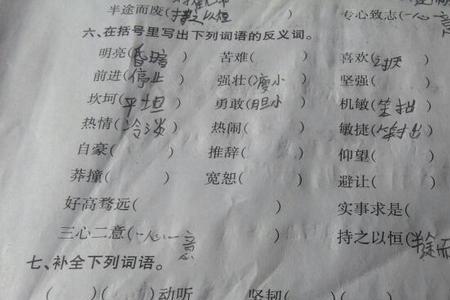 半途而废(持之以恒) 专心致志(一心
六、在括号里写出下列词语的反义词。
明亮(昏暗) 苦难( ) 喜欢(讨厌)
前进(停止) 强壮( 小) 坚强( )
坎坷(平坦) 勇敢(胆小) 机敏(笨拙)
热情(冷淡) 热闹( ) 敏捷( )
自豪( ) 推辞( ) 仰望( )
莽撞( ) 宽恕( ) 避让( )
好高骛远( ) 实事求是(
三心二意(一心一意 持之以恒(半途而
七、补全下列词语。
( )( )动听 坚韧( )(